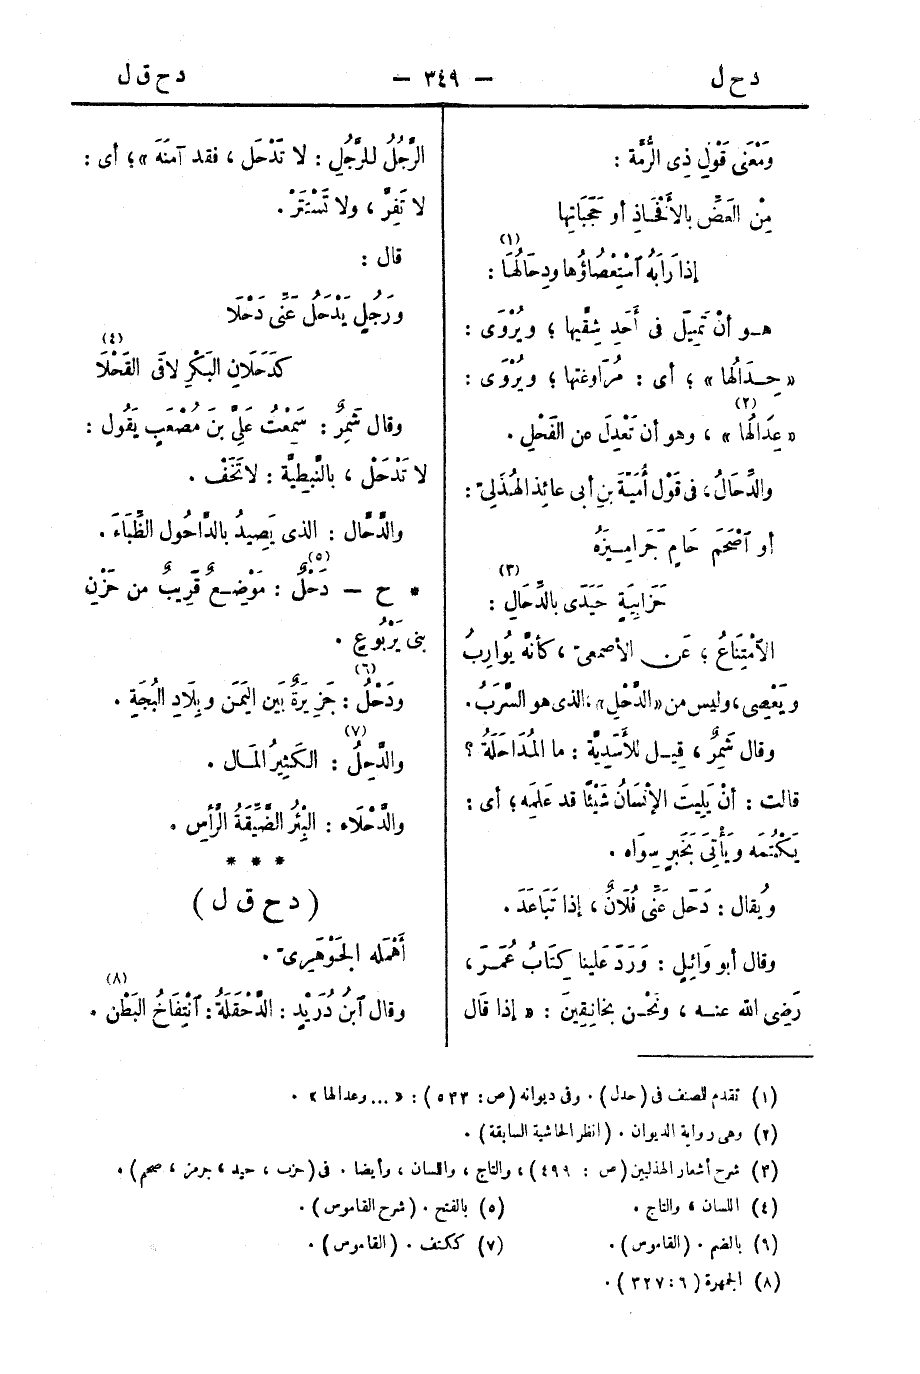 د ح ل — ٣٤٩ — د ح ق ل
وَمَعْنَى قَوْلِ ذِى الرُّمَّة :
مِنْ العَضِّ بالأَفْخَاذِ أو حَجَبَاتِها
إذا رَابَهُ ٱسْتِعْصَاؤُها ودِحَالُهَا (١) :
هـو أنْ تَمِيلَ فى أَحَدِ شِقَّيها ؛ ويُرْوَى :
« حِـدَالُها » ؛ أى : مُرَاوغتها ؛ ويُرْوَى :
« عِدَالُها » (٢) ، وهو أن تَعْدِلَ عن الفَحْلِ .
والدِّحَالُ ، فى قَوْل أُمَيَّةَ بنِ أبى عائذ الهُذَلىّ :
أو ٱصْحَمَ حَامٍ جَرَامِـيزَهُ
حَزَابِيَةٍ حَيَدَى بالدِّحَالِ (٣) :
الٱمْتِنَاعُ ؛ عَن الأصمعىّ ، كأنّه يُوَارِبُ
ويَعْصِى ، وليس من « الدَّحْلِ » ، الذى هو السَّرَبُ .
وقال شَمِرٌ ، قيـل للأَسَدِيَّة : ما المُدَاحَلَةُ ؟
قالت : أنْ يَلِيتَ الإنْسَانُ شَيْئًا قد عَلِمَه ؛ أى :
يَكْتُمَه ويَأْتِىَ بخَبَرٍ سِوَاه .
ويُقال : دَحَل عَنِّى فُلَانٌ ، إذا تَبَاعَدَ .
وقال أبو وَائِلٍ : وَرَدَ عَلينا كِتَابُ عُمَـرَ ،
رَضِى الله عنـه ، ونَحْـن بخَانِقِينَ : « إذا قَال
الرَّجُلُ للرَّجُلِ : لا تَدْحَل ، فقد آمَنَهُ » ؛ أى :
لا تَفِرَّ ، ولا تَسْتَتَرْ .
قال :
ورَجُلٍ يَدْحَلُ عَنِّى دَحْلَا
كدَحَلَانِ البَكْرِ لاقَى الفَحْلَا (٤)
وقال شَمِرٌ : سَمِعْتُ عَلِىَّ بنَ مُصْعَبٍ يَقُول :
لا تَدْحَلْ ، بالنَّبطِيَّة : لا تَخَفْ .
والدَّحَّال : الذى يَصِيدُ بالدَّاحُول الظِّبَاءَ .
* ح — دَحْلٌ (٥) : مَوْضِـعٌ قَرِيبٌ من حَزْنِ
بنى يَرْبُوعٍ .
ودَحْلُ (٦) : جَزِيرَةٌ بَين اليَمَن وبِلَادِ البُجَةِ .
والدَّحِلُ (٧) : الكَثِيرُ المَـال .
والدَّحْلَاء : البِئْرُ الضَّيِّقَةُ الرَّأْسِ .
* * *
( د ح ق ل )
أَهْمَله الجَوْهَرِىّ .
وقال ٱبنُ دُرَيْدٍ : الدَّحْقَلَةُ : ٱنْتِفَاخُ البَطْن (٨) .
(١) تقدم للصنف فى (حدل) . وفى ديوانه (ص : ٥٣٣) : « ... وعدالها » .
(٢) وهى رواية الديوان . (انظر الحاشية السابقة) .
(٣) شرح أشعار الهذليين (ص : ٤٩٩) ، والتاج ، واللسان ، وأيضا . فى (حزب ، حيد ، جرمز ، صحم) .
(٤) اللسان ، والتاج . (٥) بالفتح . (شرح القاموس) .
(٦) بالضم . (القاموس) . (٧) ككتف . (القاموس) .
(٨) الجمهرة (٣٢٧:٦) .